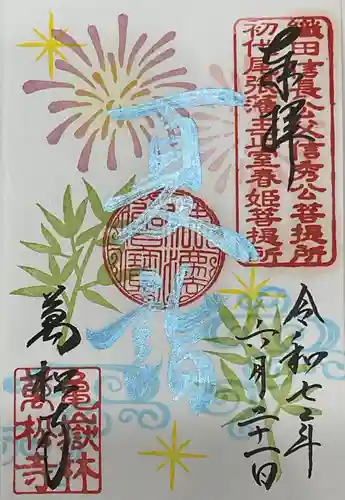 奉拝
織田信長公父信秀公菩提所
初代尾張藩主正室春姫菩提所
夏詣
令和七年
六月二十一日
萬松寺
龜嶽林
萬松寺